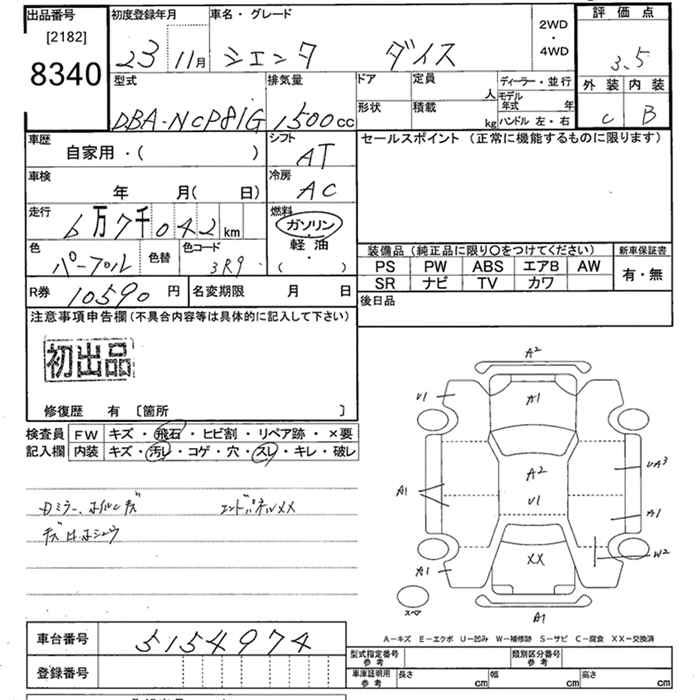 出品番号
[2182]
8340
初度登録年月
23 11月
車名・グレード
シエンタ ダイス
2WD
・
4WD
評価点
3.5
外装 内装
C B
型式
DBA-NCP81G
排気量
1500cc
ドア
定員 人
形状
積載 kg
ディーラー・並行
モデル年式 年
ハンドル 左・右
車歴
自家用・( )
シフト
AT
車検
年 月( 日)
冷房
AC
走行
6万7千042km
燃料
ガソリン
軽油
・
( )
色
パープル
色替
色コード
3R9
R券 10590円
名変期限 月 日
セールスポイント(正常に機能するものに限ります)
装備品(純正品に限り○をつけてください)
新車保証書
PS PW ABS エアB AW
SR ナビ TV カワ
有・無
後日品
注意事項申告欄(不具合内容等は具体的に記入して下さい)
初出品
修復歴 有 〔箇所 〕
検査員記入欄
FW キズ・飛石・ヒビ割・リペア跡・×要
内装 キズ・汚レ・コゲ・穴・スレ・キレ・破レ
エンドパネルXX
A2
U1
A1
A2
UA3
A1
U1
A1
XX
W2
A1
スペア
A1
A-キズ E-エクボ U-凹み W-補修跡 S-サビ C-腐食 XX-交換済
車台番号 5154974
登録番号
型式指定番号参考
類別区分番号参考
車庫証明用参考
長さ cm
幅 cm
高さ cm